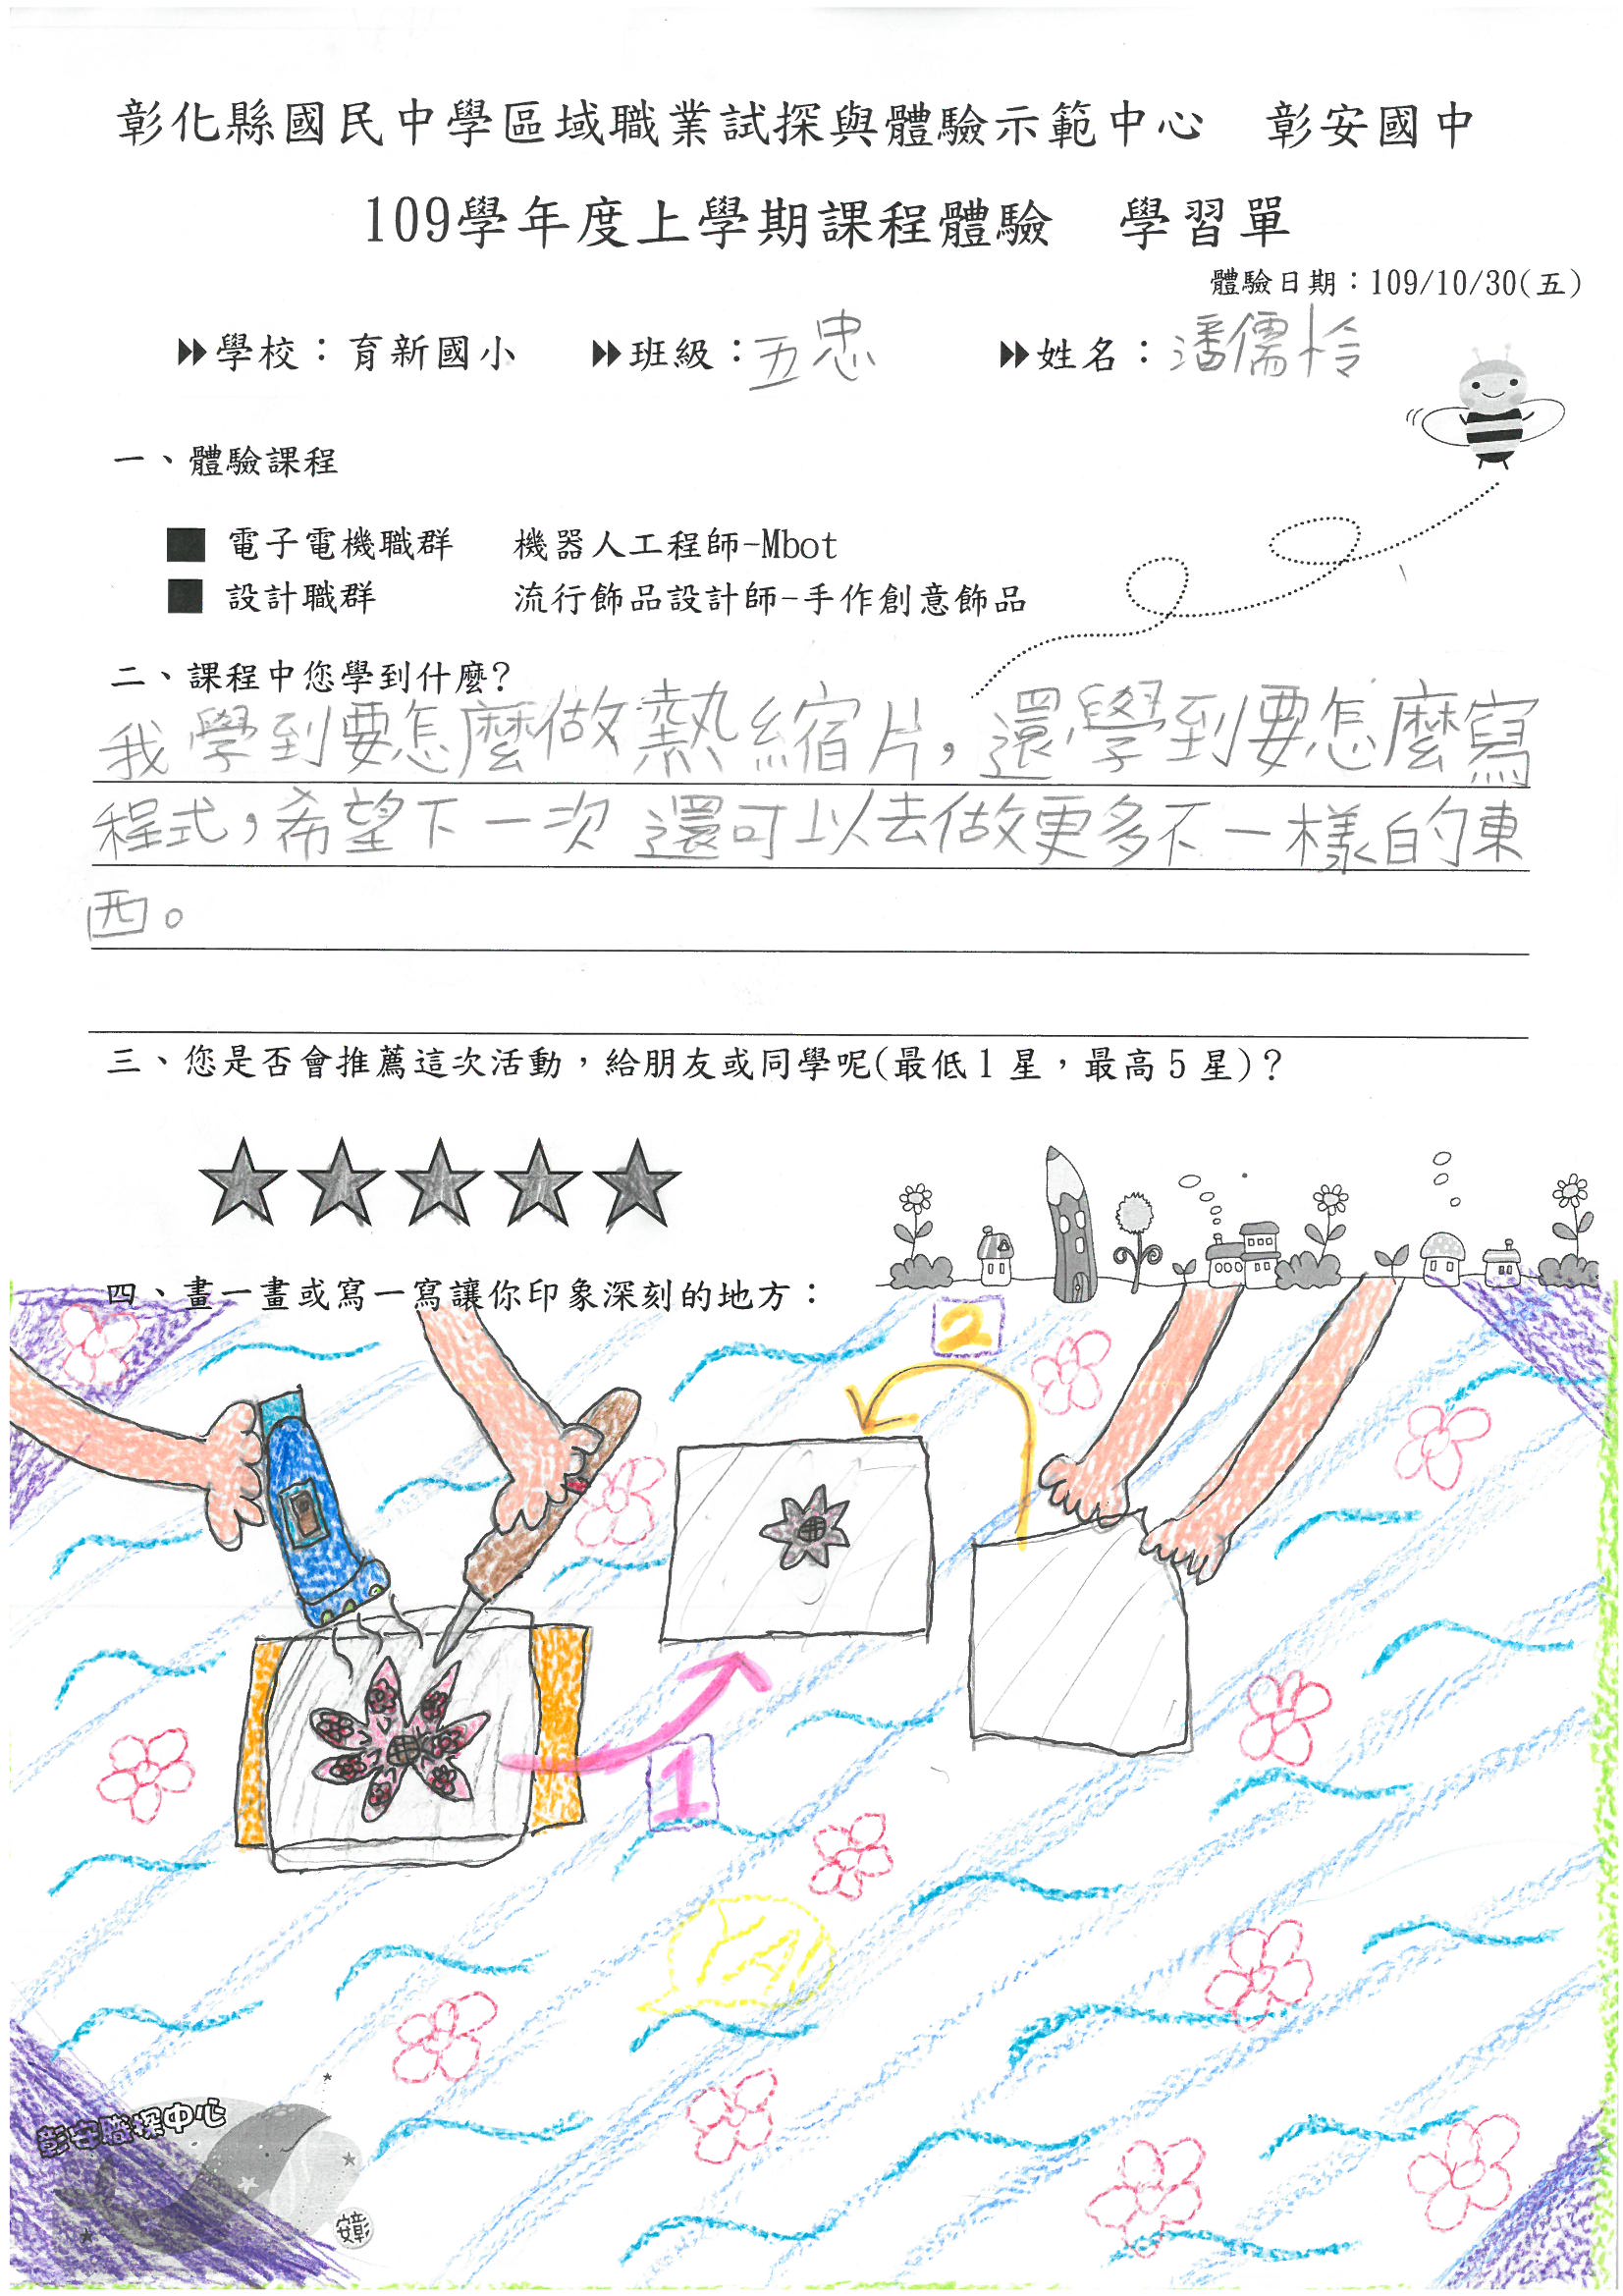 彰化縣國民中學區域職業試探與體驗示範中心 彰安國中
109學年度上學期課程體驗 學習單
體驗日期：109/10/30(五)
學校：育新國小 班級：五忠 姓名：潘儒怜
一、體驗課程
電子電機職群 機器人工程師-Mbot
設計職群 流行飾品設計師-手作創意飾品
二、課程中您學到什麼?
我學到要怎麼做熱縮片，還學到要怎麼寫
程式，希望下一次還可以去做更多不一樣的東
西。
三、您是否會推薦這次活動，給朋友或同學呢(最低1星，最高5星)?
四、畫一畫或寫一寫讓你印象深刻的地方：
2
1
YA
彰安職探中心
彰安